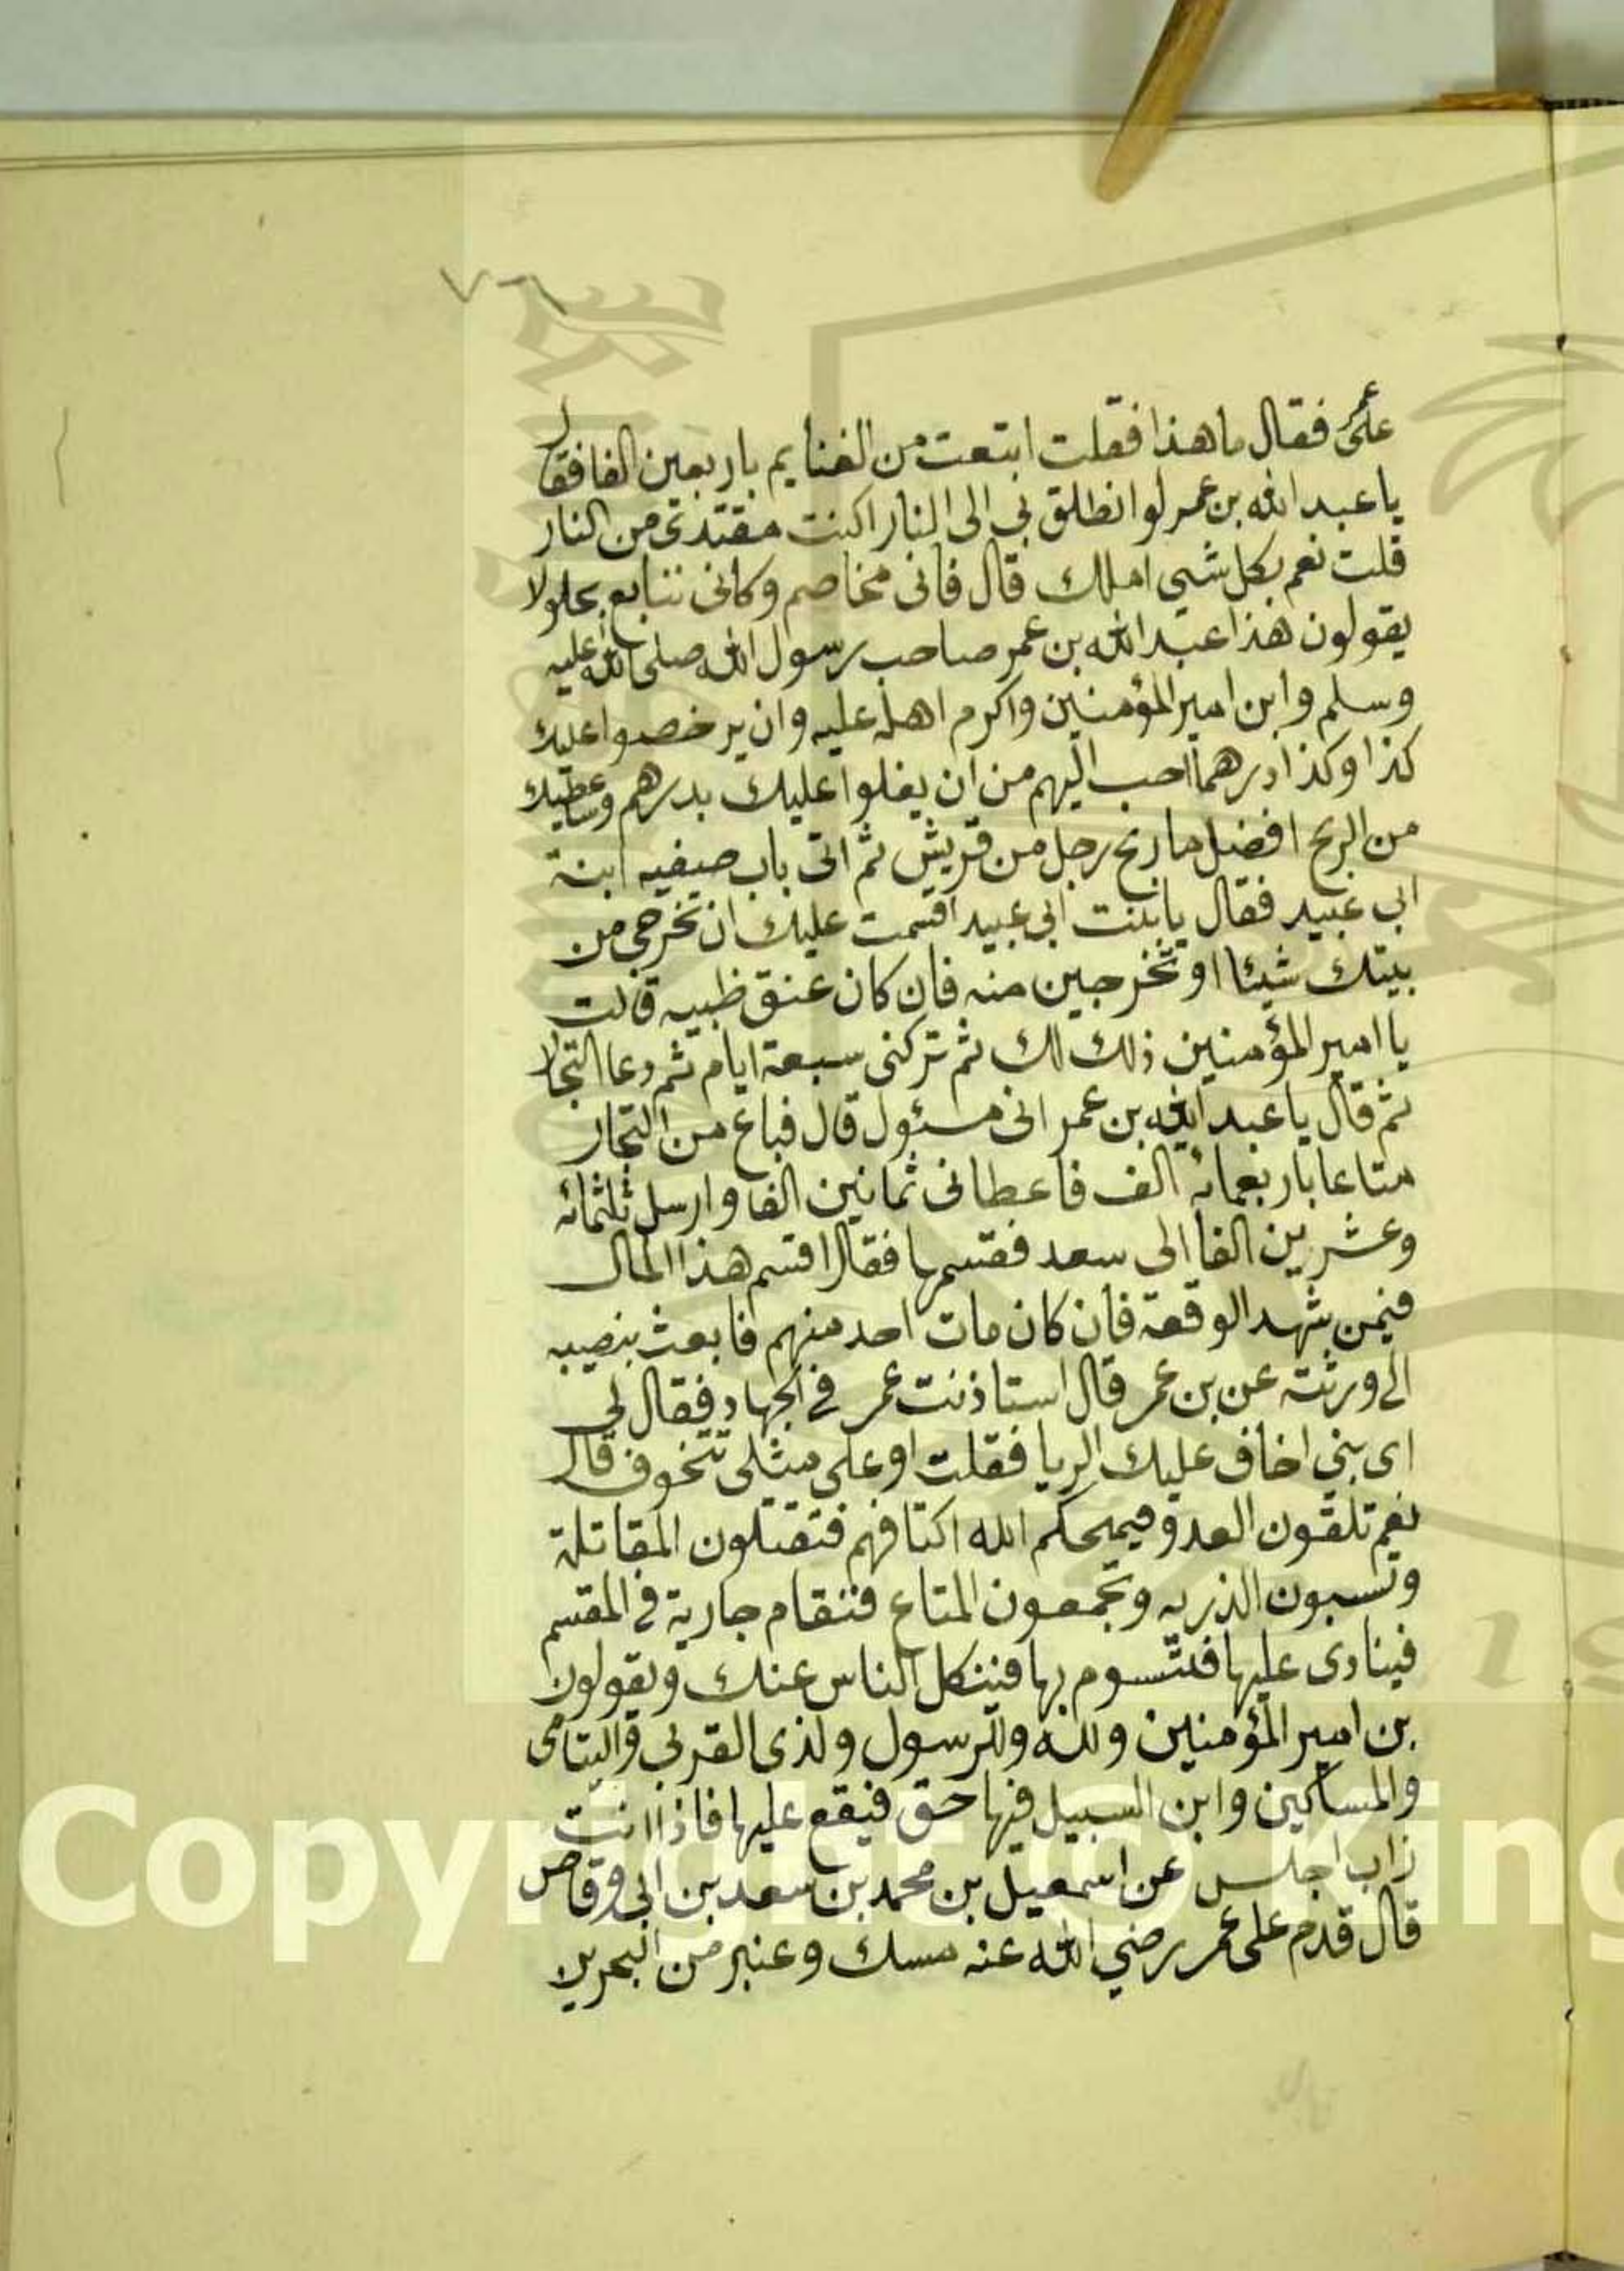 على عمر فقال ما هذا فقلت ابتعت من الغنايم باربعين الفا فقال
يا عبد الله بن عمر لو انطلق بي الى النار اكنت مفتدى من النار
قلت نعم بكل شيى املك قال فانى مخاصم وكانى تبايع بجلولا
يقولون هذا عبد الله بن عمر صاحب رسول الله صلى الله عليه
وسلم وابن امير المؤمنين واكرم اهله عليه وان يرخصوا عليك
كذا وكذا درهما احب اليهم من ان يغلوا عليك بدرهم وساعطيك
من الربح افضل ما ربح رجل من قريش ثم اتى باب صيفيه ابنة
ابى عبيد فقال يا بنت ابى عبيد اقسمت عليك ان تخرجى من
بيتك شيئا او تخرجين منه فان كان عنق ظبيه قالت
يا امير المؤمنين ذلك لك ثم تركنى سبعة ايام ثم دعا التجار
ثم قال يا عبد الله بن عمر انى مسئول قال فباع من التجار
متاعا باربعمائه الف فاعطانى ثمانين الفا وارسل ثلثمائه
وعشرين الفا الى سعد فقسمها فقال اقسم هذا المال
فيمن شهد الوقعة فان كان مات احد منهم فابعث بنصيبه
الى ورثته عن بن عمر قال استاذنت عمر في الجهاد فقال لى
اى بني اخاف عليك الربا فقلت او على مثلى تتخوف قال
نعم تلقون العدو فيمحكم الله اكتافهم فتقتلون المقاتلة
وتسبون الذريه وتجمعون المتاع فتقام جارية في المقسم
فينادى عليها فتسوم بها فينكل الناس عنك ويقولون
بن امير المؤمنين ولله وللرسول ولذى القربى واليتامى
والمساكين وابن السبيل فيها حق فيقع عليها فاذا انت
زاب اجلس عن اسمعيل بن محمد بن سعد بن ابى وقاص
قال قدم على عمر رضي الله عنه مسك وعنبر من البحرين
Copyright © King